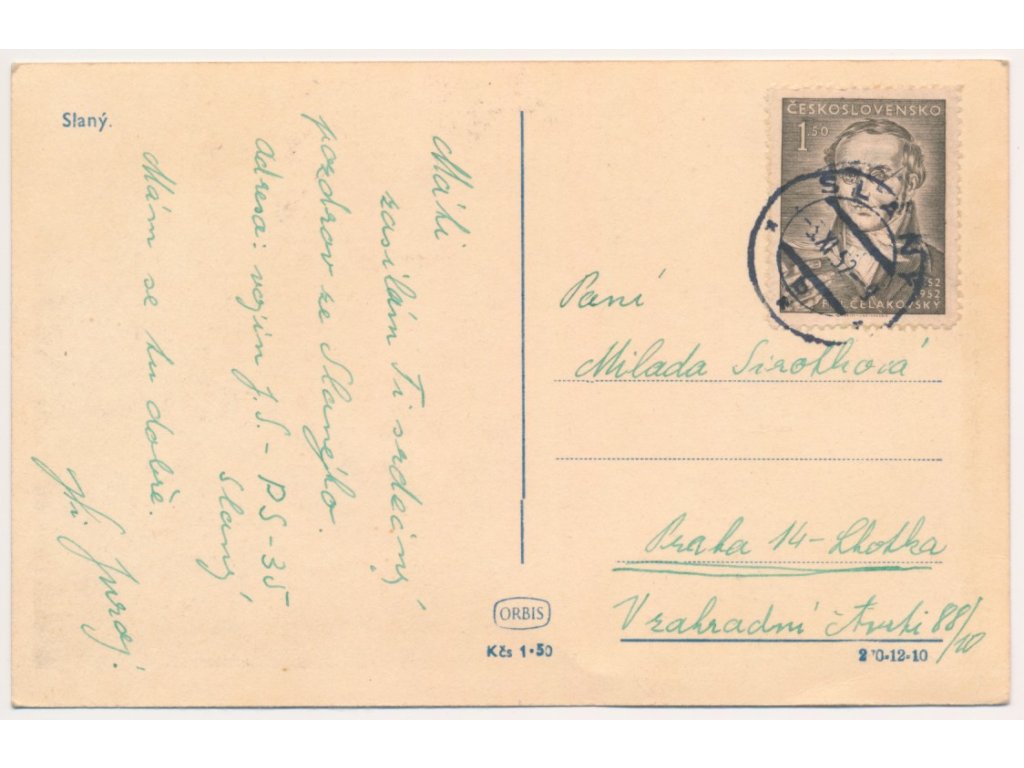 Slaný.
Máti
zasílám Ti srdečný
pozdrav ze Slaného.
adresa: vojín J.S. - PS-35
Slaný
Mám se tu dobře.
Juraj.
ČESKOSLOVENSKO
1.50
1952
F.L. ČELAKOVSKÝ
SLANÝ
Paní
Milada Sirotková
Praha 14 - Lhotka
V zahradní čtvrti 88/10
ORBIS
Kčs 1·50
270-12-10